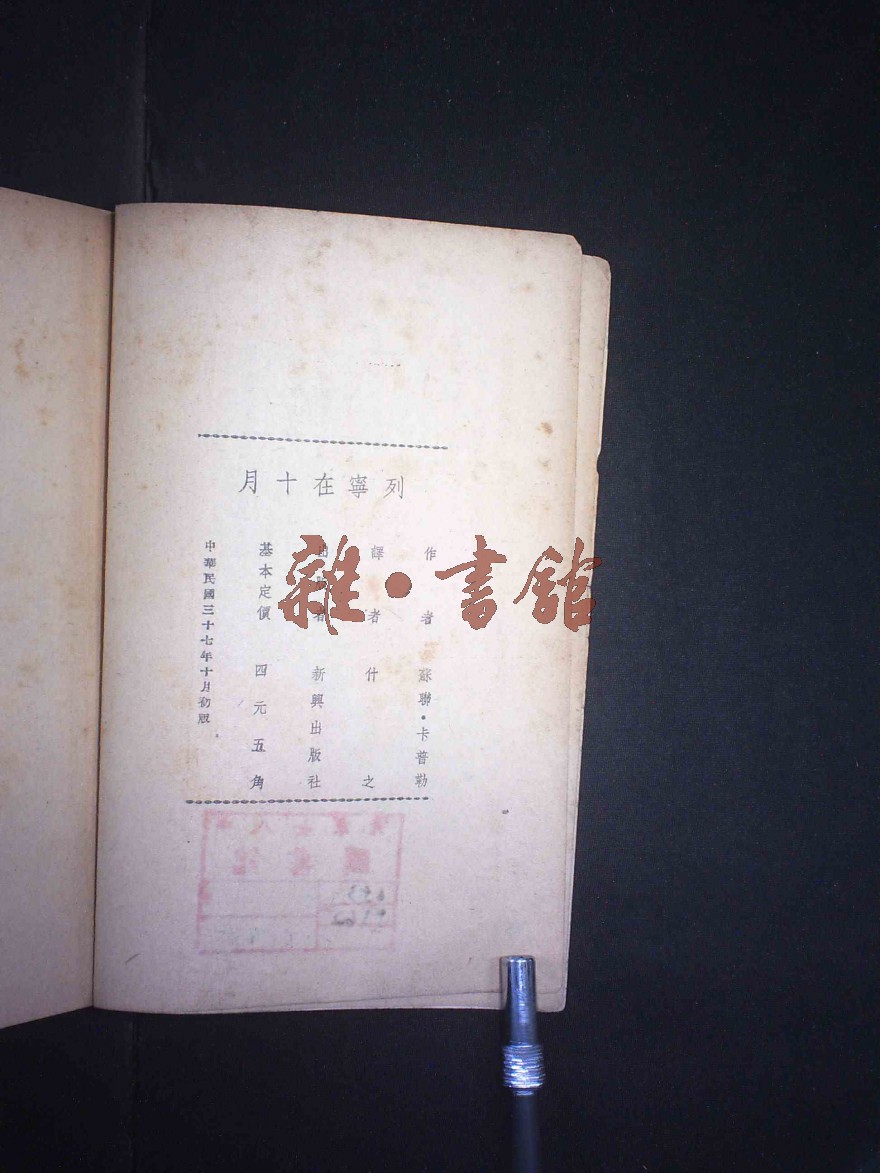 列寧在十月
作者 蘇聯·卡普勒
譯者 什之
出版者 新興出版社
基本定價 四元五角
中華民國三十七年十月初版
雜·書館